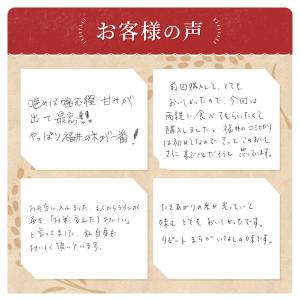 お客様の声
噛めば噛む程 甘みが
出て最高!!
やっぱり福井の味が一番!
前回購入して、とても
おいしかったので、今回は
両親に食べてもらいたくて
購入しました。福井のコシヒカリ
は初めてなので きっと このおいし
さに 喜ぶことだろうと 思っています。
お弁当に入れました。
夜、「お米、変えた？おいしい」
と言ってました。私自身も
おいしく頂いています。
たきあがりの米が光っていて
味も とても おいしかったです。
リピート まちがいなしの味です。